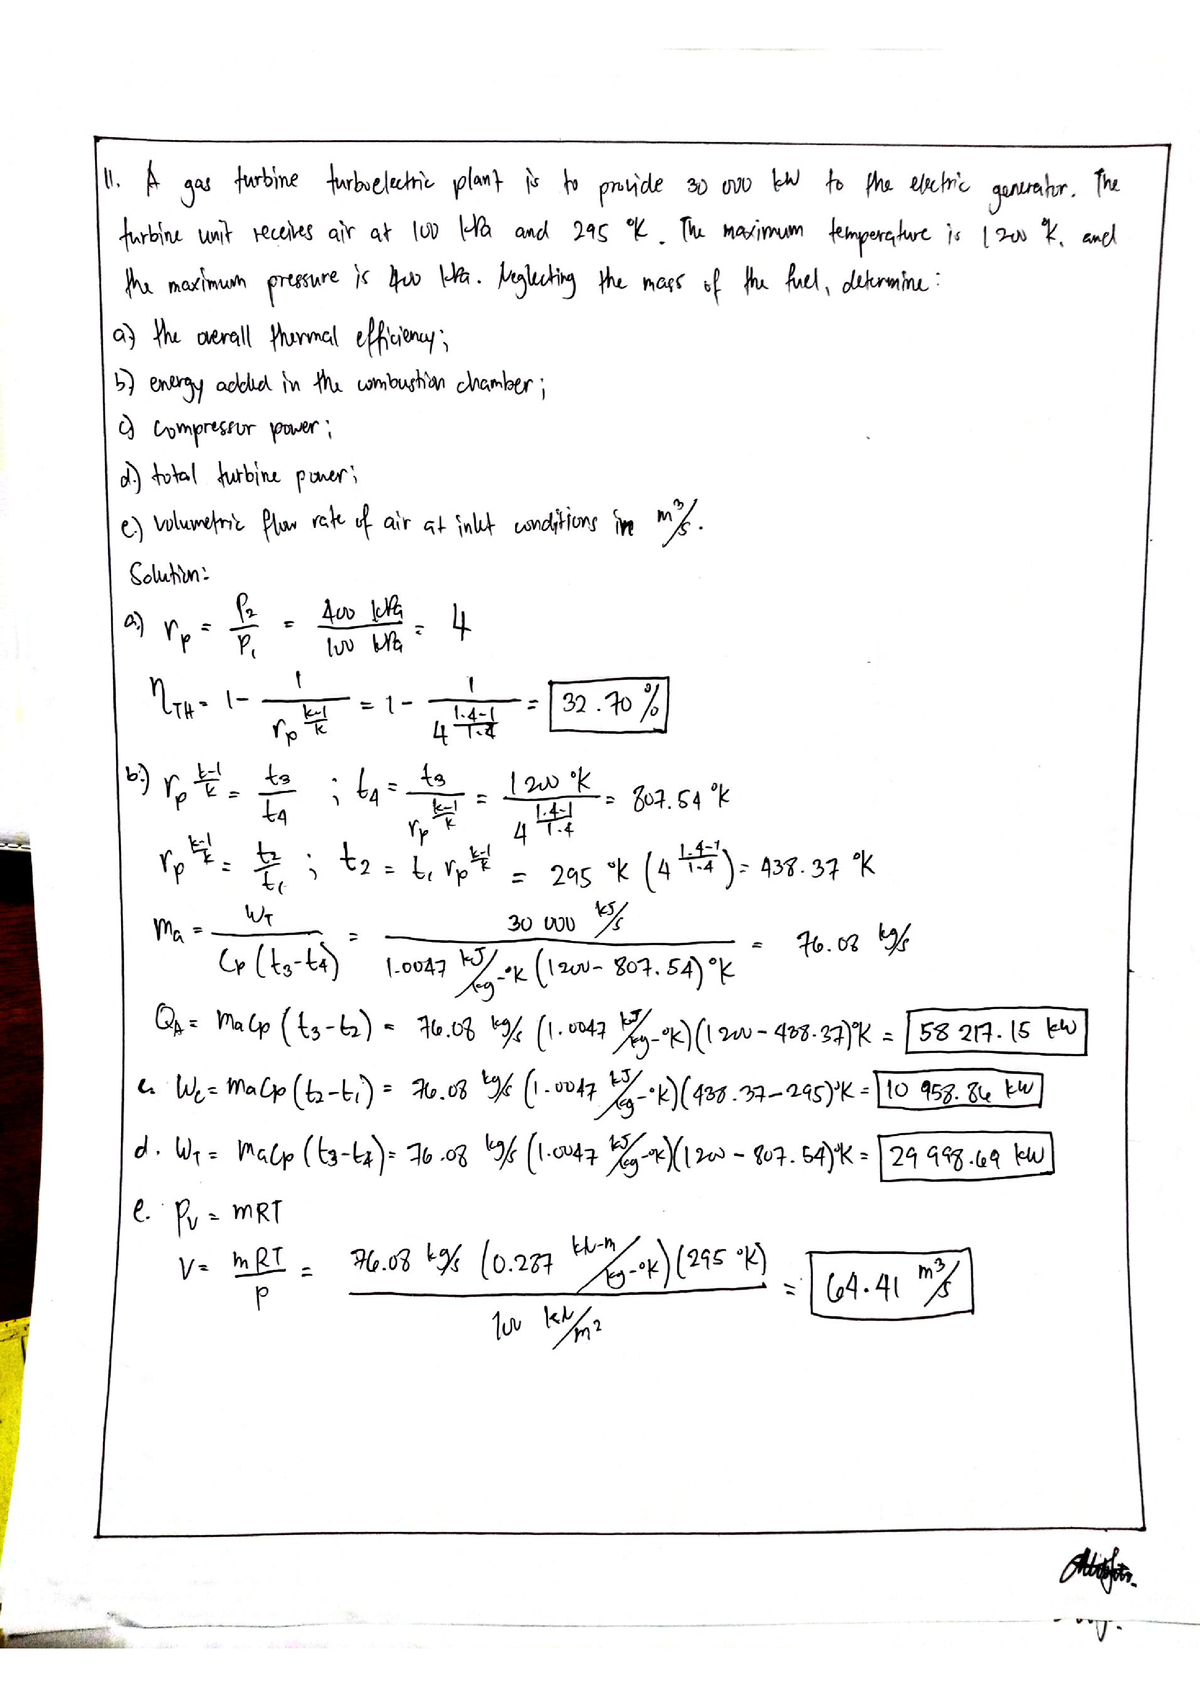 11. A gas turbine turboelectric plant is to provide 30 000 kW to the electric generator. The
turbine unit receives air at 100 kPa and 295 °K. The maximum temperature is 1200 °K, and
the maximum pressure is 400 kPa. Neglecting the mass of the fuel, determine:
a) the overall thermal efficiency;
b) energy added in the combustion chamber;
c) compressor power;
d.) total turbine power;
e.) volumetric flow rate of air at inlet conditions in m³/s.
Solution:
a.) rp = P2/P1 = 400 kPa/100 kPa = 4
ηTH = 1 - 1/rp^((k-1)/k) = 1 - 1/4^((1.4-1)/1.4) = 32.70 %
b.) rp^((k-1)/k) = t3/t4 ; t4 = t3/rp^((k-1)/k) = 1200 °K/4^((1.4-1)/1.4) = 807.54 °K
rp^((k-1)/k) = t2/t1 ; t2 = t1 rp^((k-1)/k) = 295 °K (4^((1.4-1)/1.4)) = 438.37 °K
ma = WT/Cp (t3-t4) = 30 000 kJ/s/1.0047 kJ/kg-°K (1200 - 807.54) °K = 76.08 kg/s
QA = maCp (t3-t2) = 76.08 kg/s (1.0047 kJ/kg-°K)(1200 - 438.37)°K = 58 217.15 kW
c. Wc = maCp (t2-t1) = 76.08 kg/s (1.0047 kJ/kg-°K)(438.37-295)°K = 10 958.86 kW
d. WT = maCp (t3-t4) = 76.08 kg/s (1.0047 kJ/kg-°K)(1200 - 807.54)°K = 29 998.69 kW
e. Pv = mRT
V = mRT/P = 76.08 kg/s (0.287 kN-m/kg-°K)(295 °K)/100 kN/m² = 64.41 m³/s